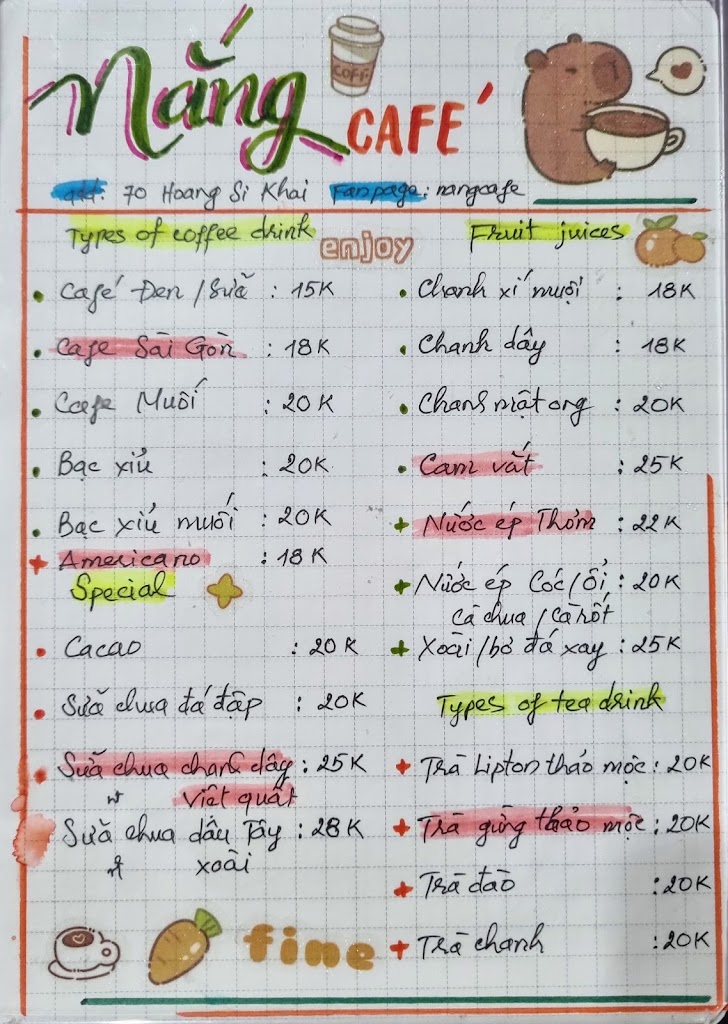 Nắng CAFÉ
COFF.
add: 70 Hoang Si Khai Fanpage: nangcafe
Types of coffee drink
enjoy
Café Đen / Sữa : 15K
Cafe Sài Gòn : 18K
Cafe Muối : 20K
Bạc xỉu : 20K
Bạc xỉu muối : 20K
Americano : 18K
Special
Cacao : 20K
Sữa chua đá đập : 20K
Sữa chua chanh dây : 25K
Việt quất
Sữa chua dâu Tây : 28K
xoài
fine
Fruit juices
Chanh xí muội : 18K
Chanh dây : 18K
Chanh mật ong : 20K
Cam vắt : 25K
Nước ép Thơm : 22K
Nước ép Cóc / Ổi : 20K
Cà chua / Cà rốt
Xoài / bơ đá xay : 25K
Types of tea drink
Trà Lipton thảo mộc : 20K
Trà gừng thảo mộc : 20K
Trà đào : 20K
Trà chanh : 20K